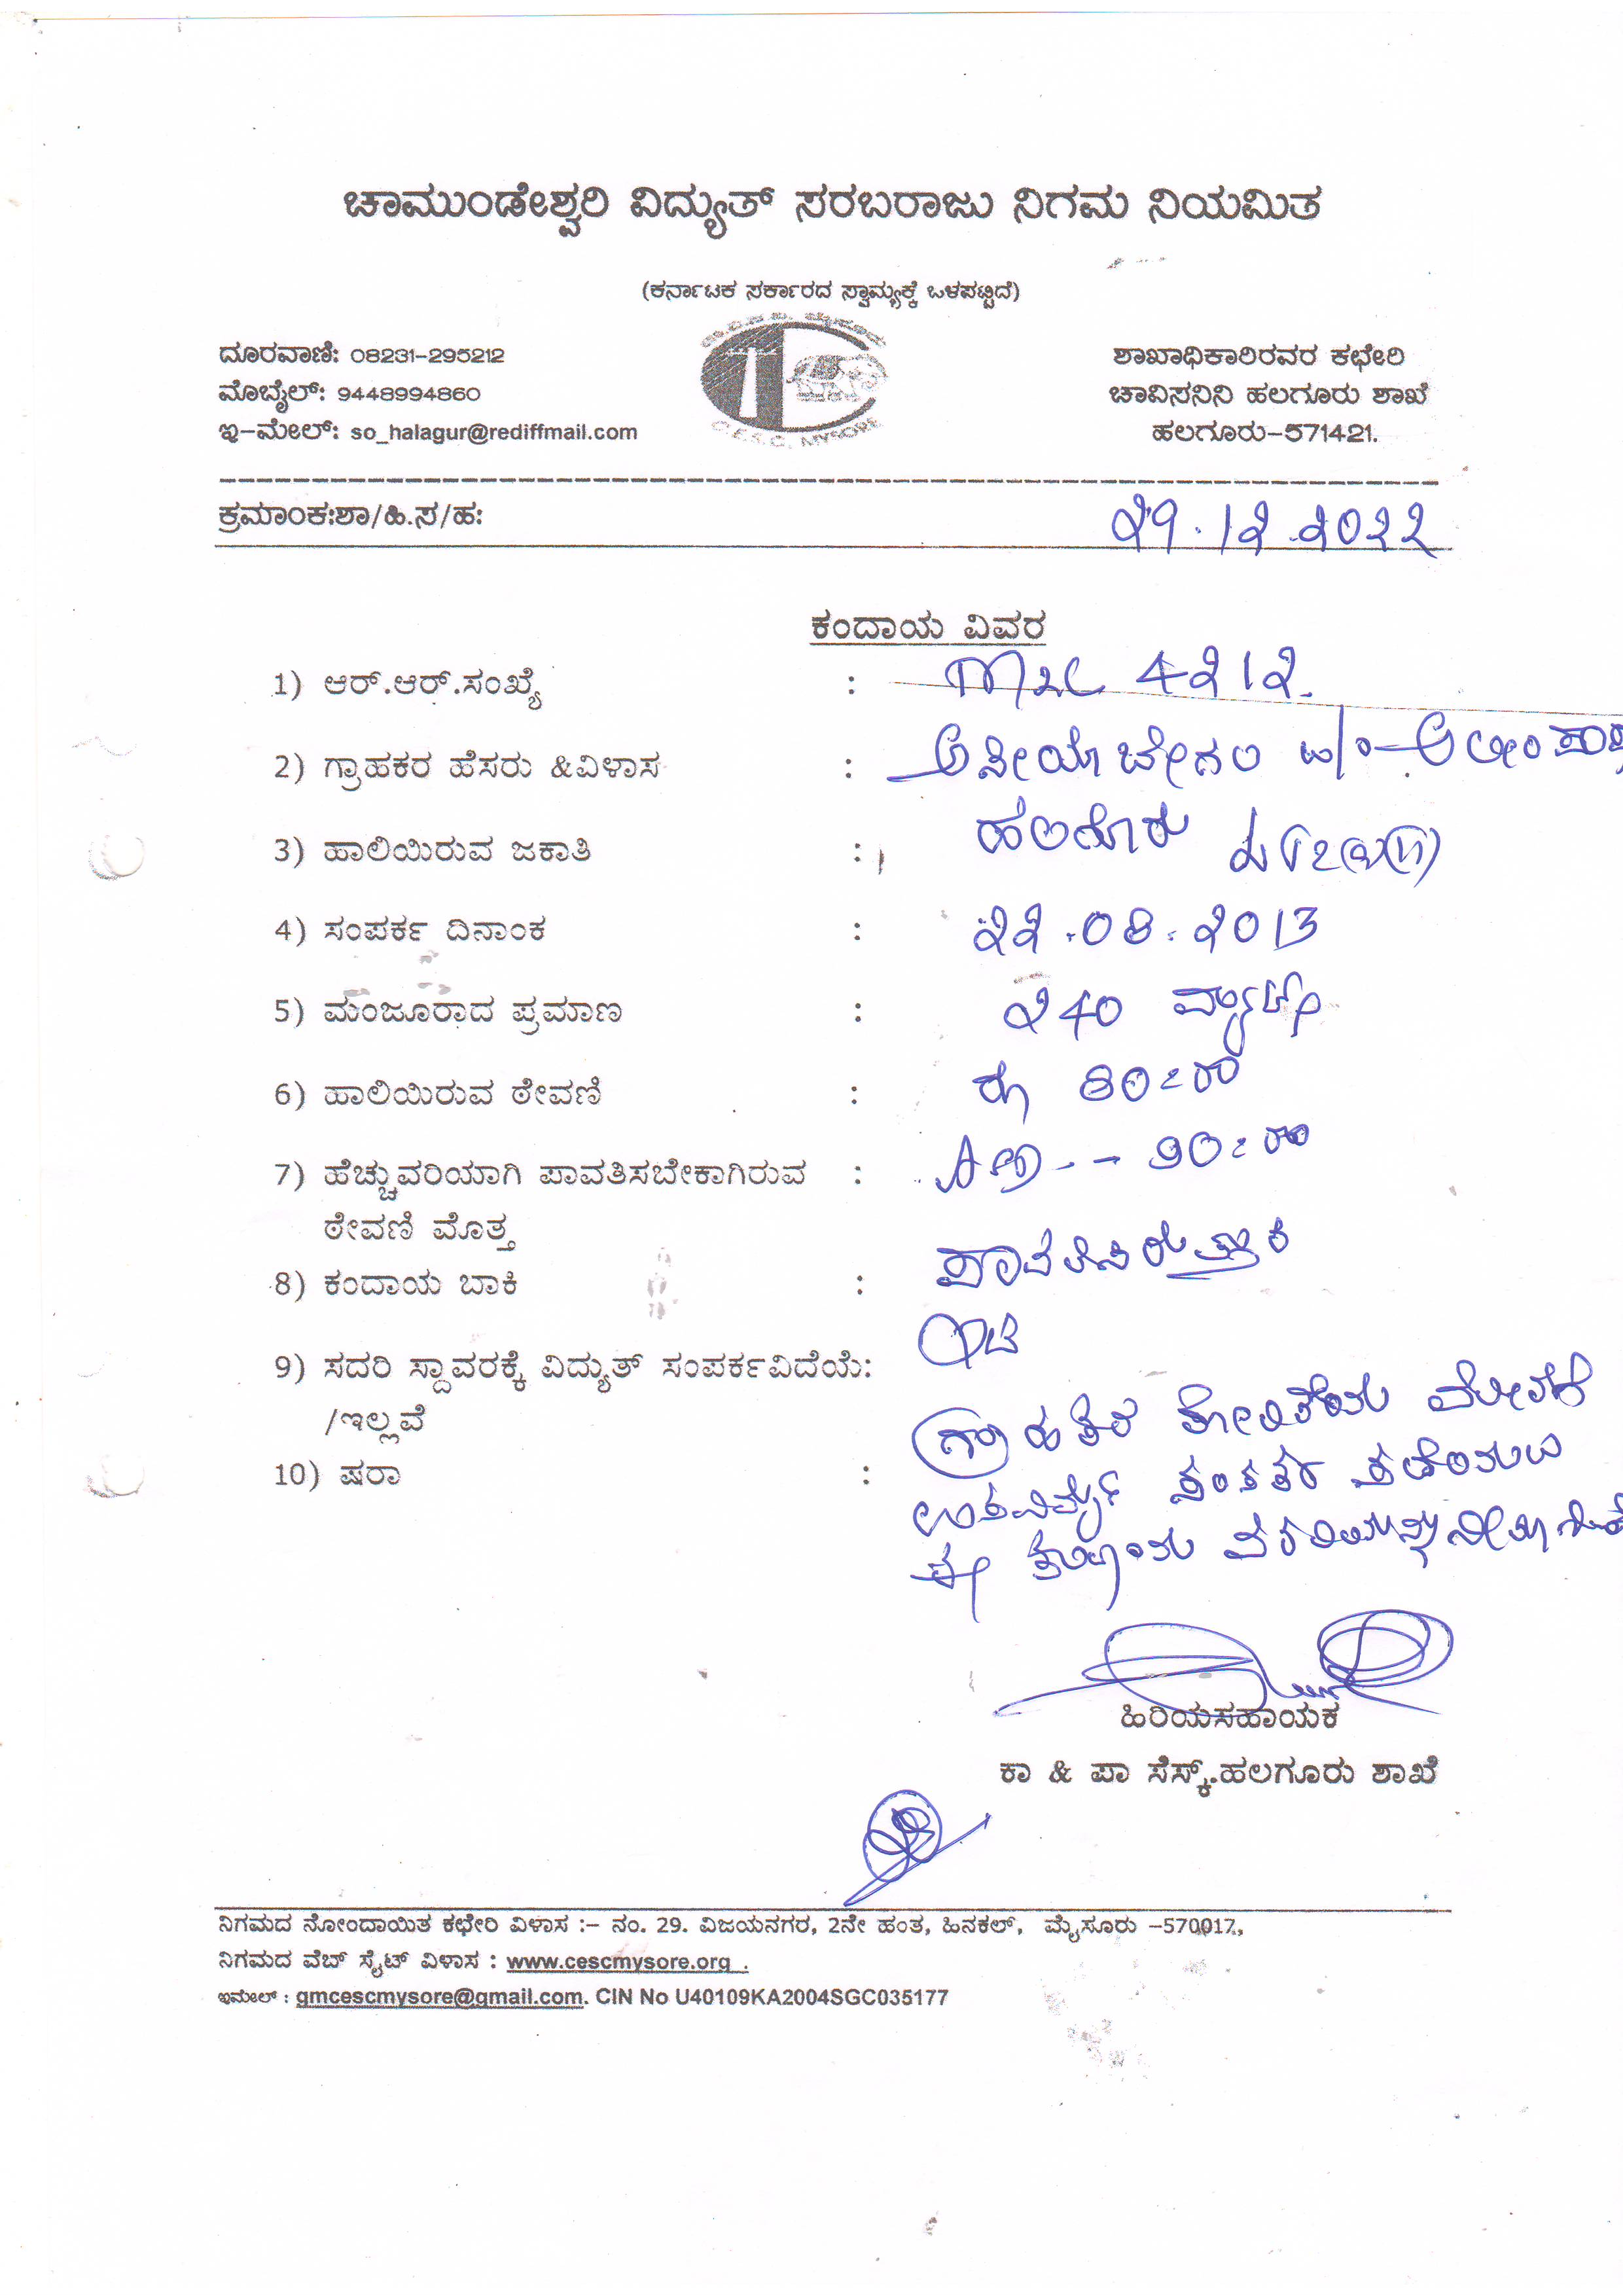 ಚಾಮುಂಡೇಶ್ವರಿ ವಿದ್ಯುತ್ ಸರಬರಾಜು ನಿಗಮ ನಿಯಮಿತ
(ಕರ್ನಾಟಕ ಸರ್ಕಾರದ ಸ್ವಾಮ್ಯಕ್ಕೆ ಒಳಪಟ್ಟಿದೆ)
ದೂರವಾಣಿ: 08231-295212
ಮೊಬೈಲ್: 9448994860
ಇ-ಮೇಲ್: so_halagur@rediffmail.com
C.E.S.C. MYSORE
ಶಾಖಾಧಿಕಾರಿರವರ ಕಛೇರಿ
ಚಾವಿಸನಿನಿ ಹಲಗೂರು ಶಾಖೆ
ಹಲಗೂರು-571421.
ಕ್ರಮಾಂಕ:ಶಾ/ಹಿ.ಸ/ಹ: 29.12.2022
ಕಂದಾಯ ವಿವರ
1) ಆರ್.ಆರ್.ಸಂಖ್ಯೆ : 4212.
2) ಗ್ರಾಹಕರ ಹೆಸರು &ವಿಳಾಸ : ಬೇಗಂ
ಹಲಗೂರು
3) ಹಾಲಿಯಿರುವ ಜಕಾತಿ :
4) ಸಂಪರ್ಕ ದಿನಾಂಕ : 22.08.2013
5) ಮಂಜೂರಾದ ಪ್ರಮಾಣ : 240 ವ್ಯಾಟ್ಸ್
6) ಹಾಲಿಯಿರುವ ಠೇವಣಿ : ರೂ 80=00
7) ಹೆಚ್ಚುವರಿಯಾಗಿ ಪಾವತಿಸಬೇಕಾಗಿರುವ :
ಠೇವಣಿ ಮೊತ್ತ
8) ಕಂದಾಯ ಬಾಕಿ : ಪಾವತಿಸಿರುತ್ತಾರೆ
9) ಸದರಿ ಸ್ಥಾವರಕ್ಕೆ ವಿದ್ಯುತ್ ಸಂಪರ್ಕವಿದೆಯೆ:
/ಇಲ್ಲವೆ
10) ಷರಾ : ಗ್ರಾಹಕರ ಕೋರಿಕೆಯ ಮೇರೆಗೆ
ಈ ಕಂದಾಯ ವರದಿಯನ್ನು
ಹಿರಿಯಸಹಾಯಕ
ಕಾ & ಪಾ ಸೆಸ್ಕ್.ಹಲಗೂರು ಶಾಖೆ
ನಿಗಮದ ನೋಂದಾಯಿತ ಕಛೇರಿ ವಿಳಾಸ :- ನಂ. 29. ವಿಜಯನಗರ, 2ನೇ ಹಂತ, ಹಿನಕಲ್, ಮೈಸೂರು -570017,
ನಿಗಮದ ವೆಬ್ ಸೈಟ್ ವಿಳಾಸ : www.cescmysore.org .
ಇಮೇಲ್ : gmcescmysore@gmail.com. CIN No U40109KA2004SGC035177